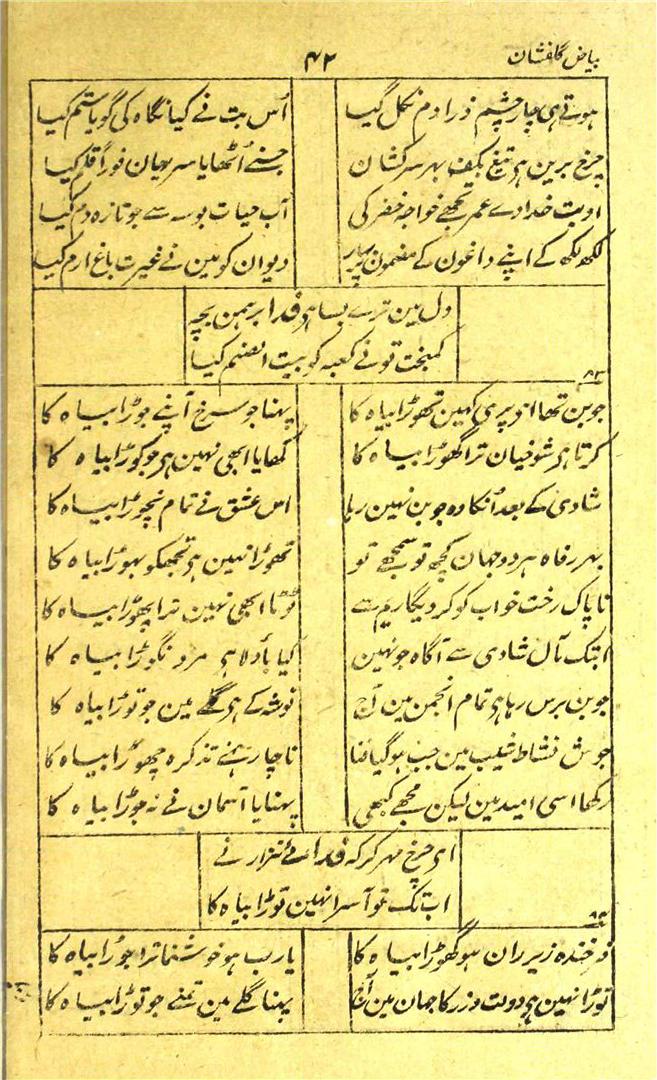 بیاض گلفشان
۴۲
ہوتے ہی چار چشم ذرا دم نکل گیا
اُس بت نے کیا نگاہ کی گویا ستم کیا
چرخ برین ہی تیغ بکف بہر سرکشان
جسنے اُٹھایا سر یہان فوراً قلم کیا
او بت خدا دے عمر تجھے خواجہ خضر کی
آب حیات بوسہ سے جو تازہ دم کیا
لکھ لکھ کے اپنے داغون کے مضمون پر بہار
دیوان کو مین نے غیرت باغ ارم کیا
دل مین ترے بسا ہی فدا برہمن بچہ
کمبخت تو نے کعبہ کو بیت الصنم کیا
۸۳
جوبن تھا ای پری کہین تھوڑا بیاہ کا
پہنا جو سرخ آپنے جوڑا بیاہ کا
کرتا ہی شوخیان ترا گھوڑا بیاہ کا
کھایا ابھی نہین ہی جو کوڑا بیاہ کا
شادی کے بعد اُنکا وہ جوبن نہین رہا
اس عشق نے تمام نچوڑا بیاہ کا
بہر رفاہ ہر دو جہان کچھ تو سمجھے تو
تھوڑا نہین ہی تجھکو بہوڑا بیاہ کا
ناپاک رخت خواب کو کر دیگا ریم سے
ٹوٹا ابھی نہین ترا پھوڑا بیاہ کا
ابتک مآل شادی سے آگاہ جو نہین
کیا باؤلا ہی مرد نگوڑا بیاہ کا
جوبن برس رہا ہی تمام انجمن مین آج
نوشہ کے ہی گلے مین جو توڑا بیاہ کا
جوش نشاط شیب مین جب ہو گیا فنا
ناچار ہمنے تذکرہ چھوڑا بیاہ کا
رکھا اسی امید مین لیکن مجھے کبھی
پہنایا آسمان نے نہ جوڑا بیاہ کا
ای چرخ مہر کر کہ فدائے نزار نے
اب تک تو آسرا نہین توڑا بیاہ کا
فرخندہ زیر ران ہو گھوڑا بیاہ کا
یا رب ہو خوشنما ترا جوڑا بیاہ کا
توڑا نہین ہی دولت و زر کا جہان مین آج
پہنا گلے مین تمنے جو توڑا بیاہ کا